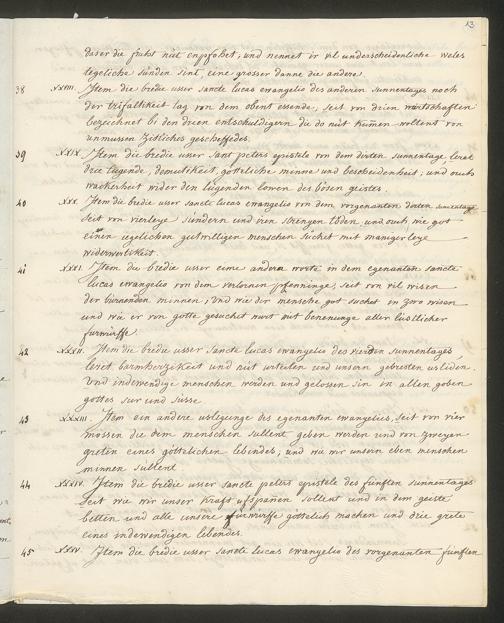 13
das er die fruht nut enpfohet, und nennet er vil underscheidenliche weles
tegeliche sunden sint, eine grosser danne die andere.
38 XXVIII. Jtem die bredie usser sancte lucas ewangelio des anderen sunnentages noch
der trifaltikeit tag von dem obent essende, seit von drien wurtschaften
bezeichnet bi den drien entschuldigern die do nut kumen woltent von
unmussen zitliches gescheffedes.
39 XXIX. Jtem die bredie usser sant peters epistele von dem dirten sunnentage, leret
drie tugende, demutikeit, gotteliche minne und bescheidenheit; und ouch
wackerheit wider den lugenden lowen des bösen geistes.
40 XXX. Jtem die bredie usser sancte lucas ewangelio von dem vorgenanten dirten sunnentage
seit von vierleye sundern und vien strengen töden, und ouch wie got
einen iegelichen gutwilligen menschen suchet mit manigerleye
widerwertikeit.
41 XXXI. Jtem die bredie usser eime andern worte in dem egenanten sancte
lucas ewangelio von dem verlornen pfenninge, seit von vil wisen
der burnenden minnen, und wie der mensche got suchet in zwo wisen
und wie er von gotte gesuchet wurt mit benemunge aller lustlicher
furwurffe.
42 XXXII. Jtem die bredie usser sancte lucas ewangelio des vierden sunnentages
leret barmherzikeit und nut urteilen und unsern gebresten usliden.
Und indewendige menschen werden und gelossen sin in allen goben
gottes sur und susse.
43 XXXIII. Jtem ein andere uslegunge des egenanten ewangelies, seit von vier
mossen die dem menschen sullent geben werden und von zweyen
greten eines göttelichen lebendes, und wie wir unsern eben menschen
minnen sullent.
44 XXXIV. Jtem die bredie usser sancte peters epistele des funften sunnentages
seit wie wir unser kraft ufspanen sollent und in dem geiste
betten und alle unsere furwurffe göttelich machen und drie grete
eines indewendigen lebendes.
45 XXXV. Jtem die bredie usser sancte lucas ewangelio des vorgenanten funften